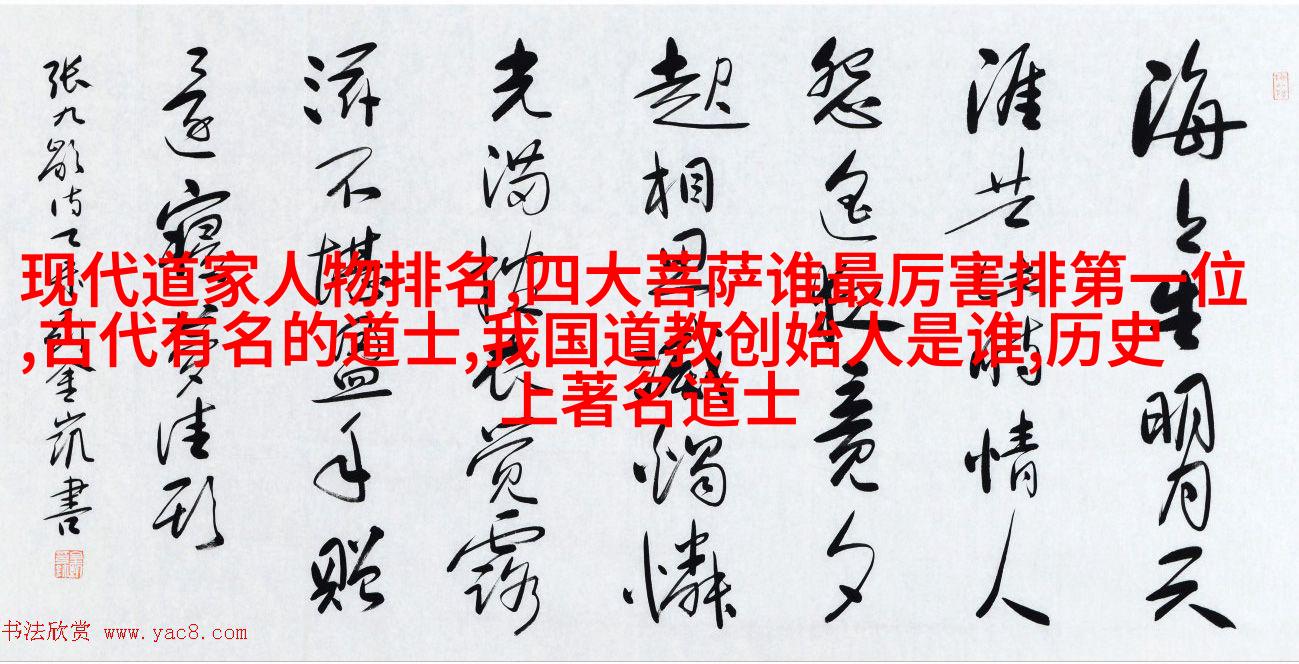 海上生明月天
涯共此时情人
怨遥夜竟夕
起相思滅燭憐
光满披衣觉露
滋不堪盈手赠
还寝梦佳期
张九龄诗 書
现代道家人物排名,四大菩萨谁最厉害排第一位
,古代有名的道士,我国道教创始人是谁,历史
上著名道士
书法欣赏 www.yac8.com